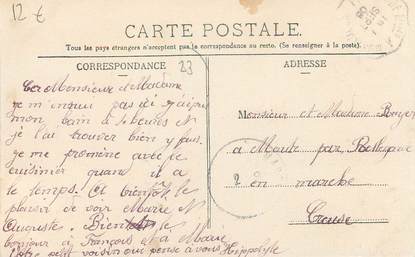 12 €
CARTE POSTALE.
Tous les pays étrangers n'acceptent pas la correspondance au recto. (Se renseigner à la poste).
CORRESPONDANCE
23
ADRESSE
Monsieur et Madame
je m'ennui pas ici j'ai pris
mon bain à 4 heures et
je l'ai trouver bien
je me promène avec le
cuisinier quand il a
le temps. Et bientôt le
plaisir de voir Marie et
Auguste. Bien le
bonjour à François et à Marie
Votre petit voisin qui pense à vous Hippolyte
Monsieur et Madame
à par
en marche
Creuse